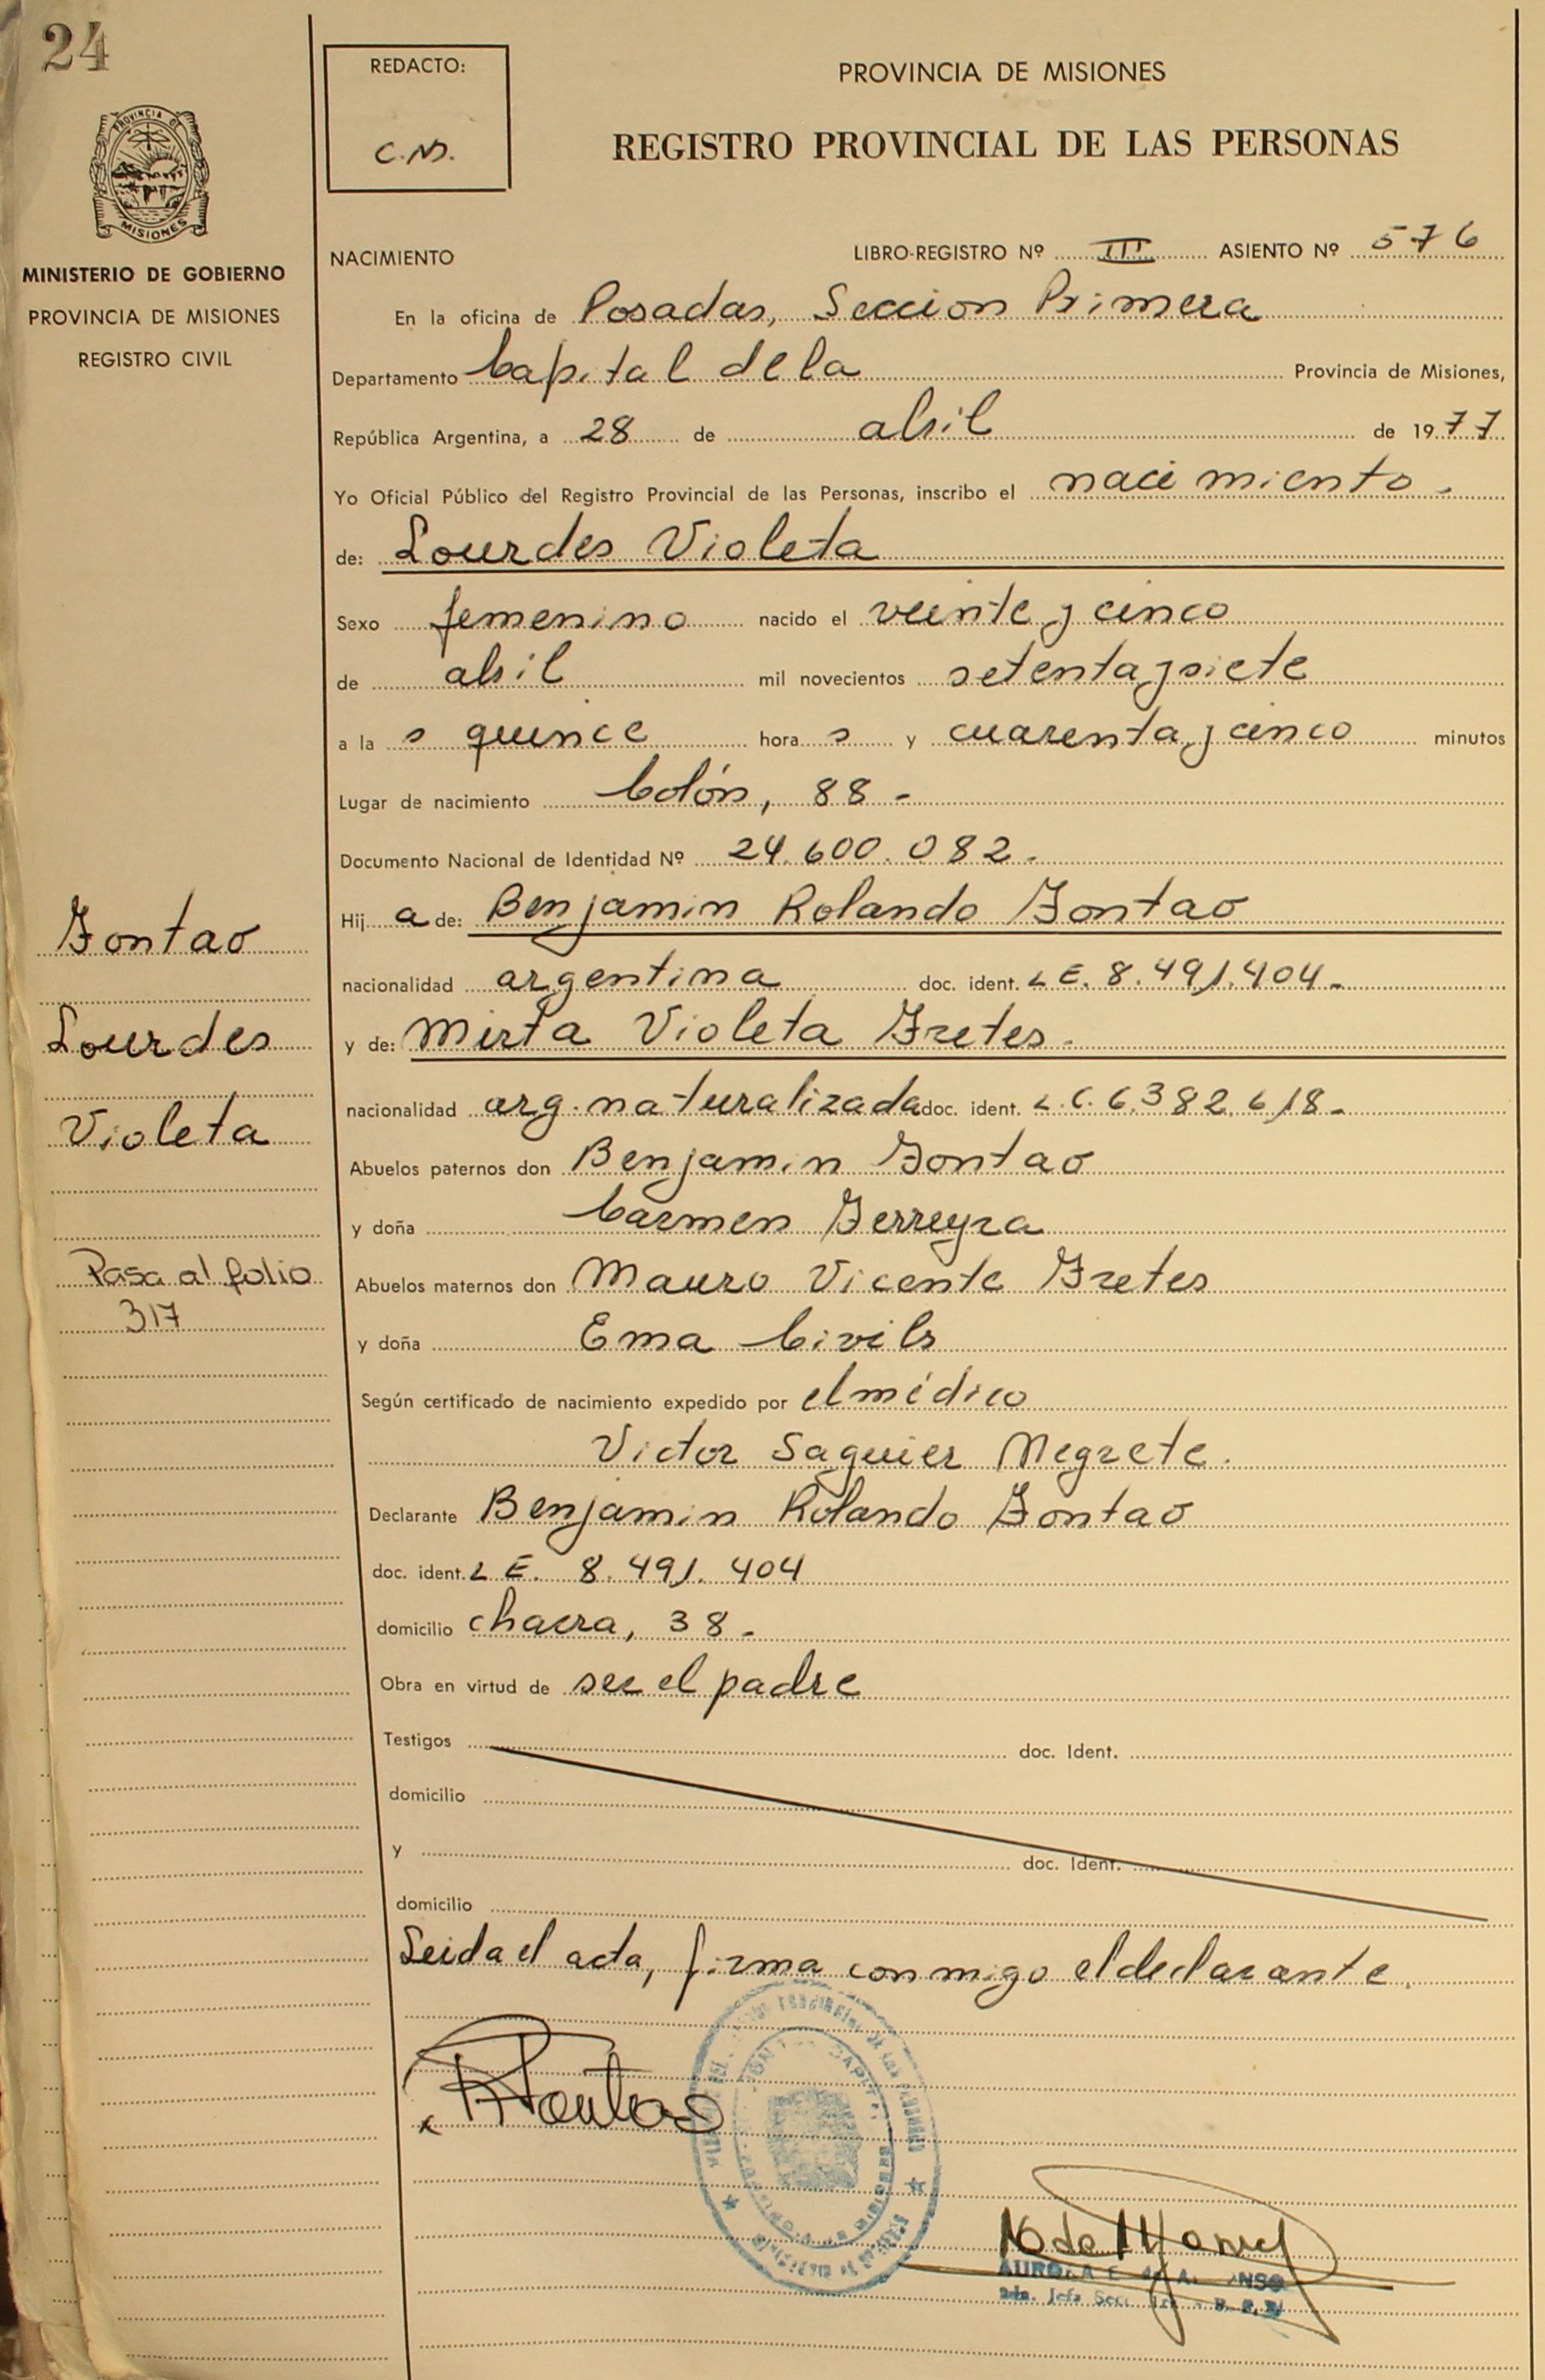 24
PROVINCIA DE
MISIONES
MINISTERIO DE GOBIERNO
PROVINCIA DE MISIONES
REGISTRO CIVIL
Fontao
Lourdes
Violeta
Pasa al folio
317
REDACTO:
C.M.
PROVINCIA DE MISIONES
REGISTRO PROVINCIAL DE LAS PERSONAS
NACIMIENTO LIBRO-REGISTRO Nº III ASIENTO Nº 576
En la oficina de Posadas, Seccion Primera
Departamento Capital de la Provincia de Misiones,
República Argentina, a 28 de abril de 1977
Yo Oficial Público del Registro Provincial de las Personas, inscribo el nacimiento.
de: Lourdes Violeta
Sexo femenino nacido el veinte y cinco
de abril mil novecientos setenta y siete
a la s quince hora s y cuarenta y cinco minutos
Lugar de nacimiento Colón, 88 -
Documento Nacional de Identidad Nº 24.600.082.
Hij a de: Benjamin Rolando Fontao
nacionalidad argentina doc. ident. L E. 8.491.404 -
y de: Mirta Violeta Fretes.
nacionalidad arg. naturalizada doc. ident. L.C. 6.382.618 -
Abuelos paternos don Benjamin Fontao
y doña Carmen Ferreyra
Abuelos maternos don Mauro Vicente Fretes
y doña Ema Civils
Según certificado de nacimiento expedido por el médico
Victor Saguier Negrete.
Declarante Benjamin Rolando Fontao
doc. ident. L E. 8.491.404
domicilio chacra, 38 -
Obra en virtud de ser el padre
Testigos doc. Ident.
domicilio
y doc. Ident.
domicilio
Leida el acta, firma conmigo el declarante.
RFontao